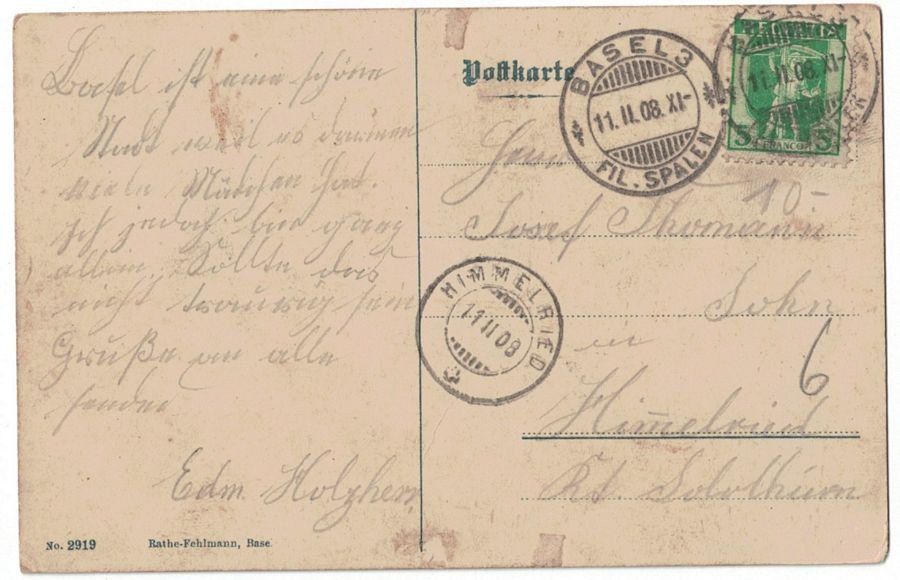 Basel ist eine schöne
Stadt weil es daùnnen
viele Mädchen hat.
Ich jedoch bin ganz
allein. Sollte das
nicht traurig sein
Grüße an alle
sendet
Edm. Holzherr
No. 2919
Rathe-Fehlmann, Base.
Postkarte
BASEL 3
11.II.08.XI-
FIL. SPALEN
11.II.08.XI-
5 FRANCO 5
10-
Herrn
Josef Thomann
Sohn
in
6
Himmelried
Kt. Solothurn
HIMMELRIED
11 II 08